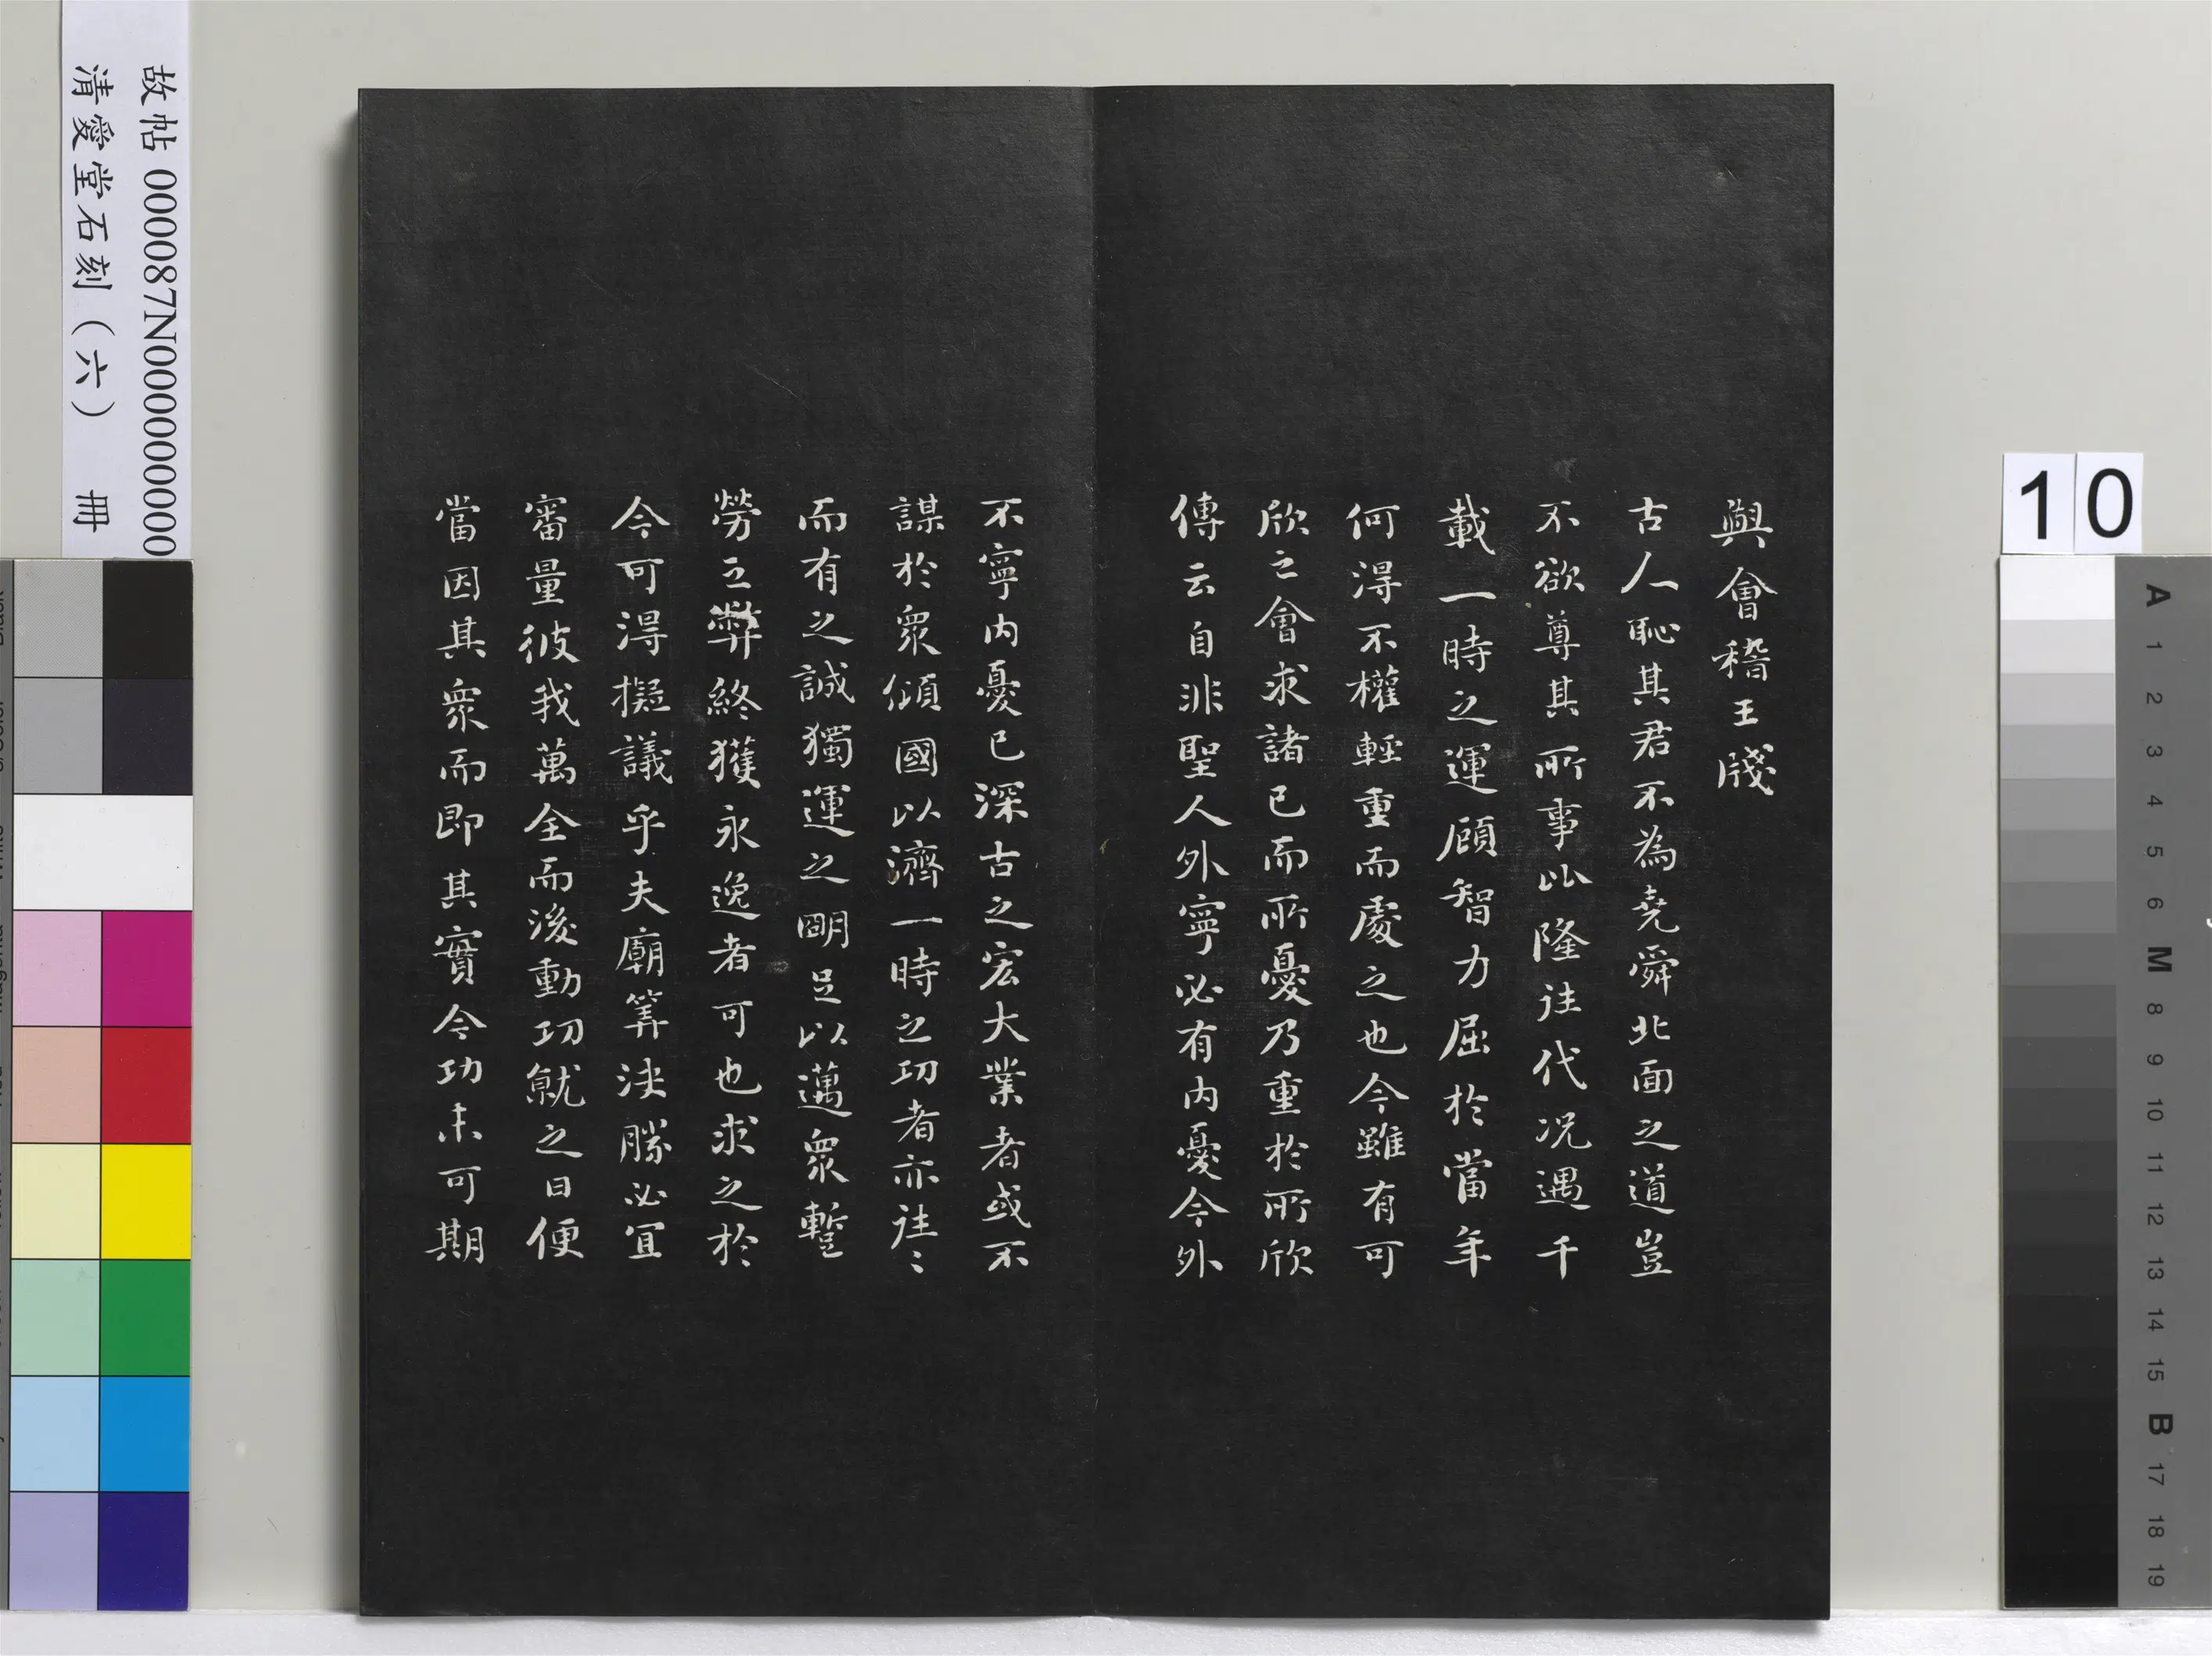 與會稽王牋
古人恥其君不為堯舜北面之道豈
不欲尊其所事比隆往代況遇千
載一時之運顧智力屈於當年
何得不權輕重而處之也今雖有可
欣之會求諸己而所憂乃重於所欣
傳云自非聖人外寧必有內憂今外
不寧內憂已深古之宏大業者或不
謀於眾傾國以濟一時之功者亦往〻
而有之誠獨運之明足以邁眾暫
勞之弊終獲永逸者可也求之於
今可得擬議乎夫廟筭決勝必宜
審量彼我萬全而後動功就之日便
當因其眾而即其實今功未可期
故帖 000087N000000000
清愛堂石刻(六) 冊
10
A 1 2 3 4 5 6 M 8 9 10 11 12 13 14 15 B 17 18 19